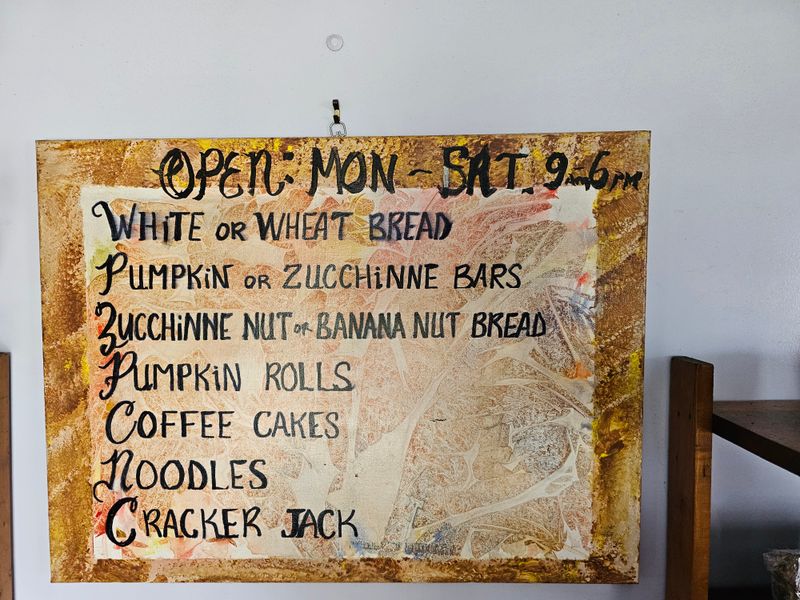 OPEN: MON - SAT. 9am 6PM
WHITE OR WHEAT BREAD
PUMPKIN OR ZUCCHINNE BARS
ZUCCHINNE NUT or BANANA NUT BREAD
PUMPKIN ROLLS
COFFEE CAKES
NOODLES
CRACKER JACK